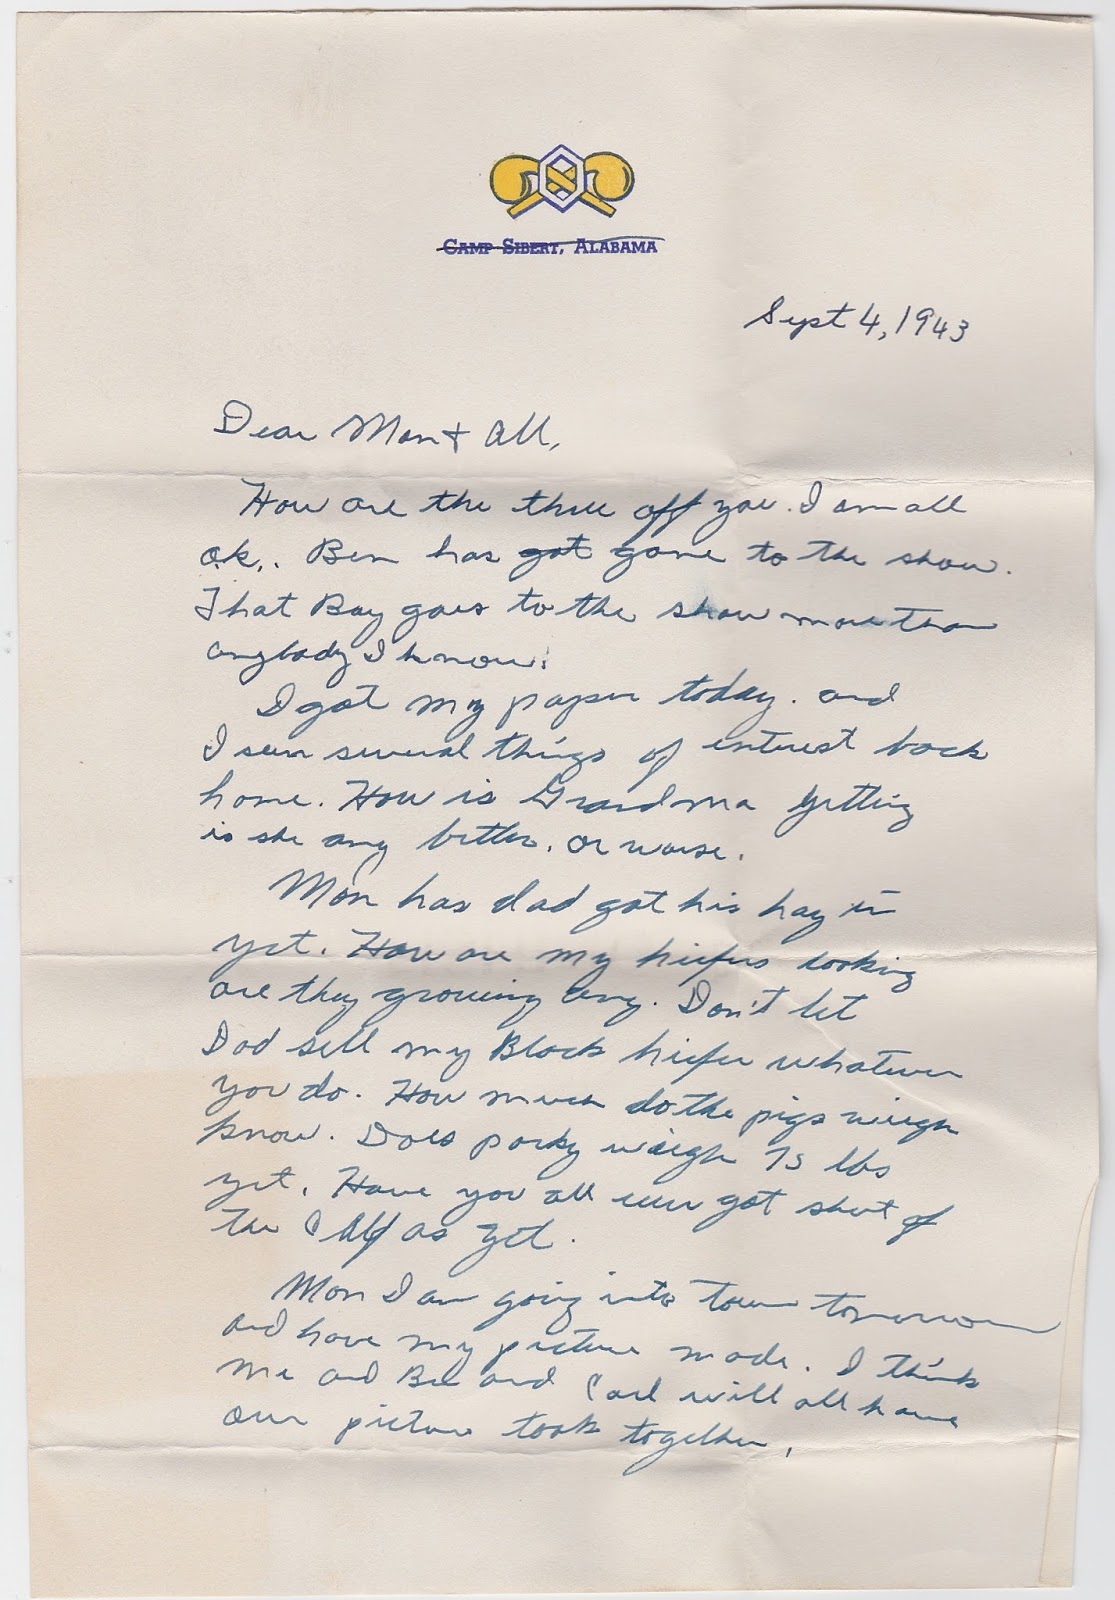 CAMP SIBERT, ALABAMA
Sept 4, 1943
Dear Mom & All,
How are the three off you. I am all
ok,. Ben has got gone to the show.
That Boy goes to the show more than
anybody I know.
I got my paper today. and
I seen several things of interest back
home. How is Grandma getting
is she any better. or worse.
Mom has dad got his hay in
yet. How are my hiefers looking
are they growing any. Don't let
Dad sell my Black hiefer whatever
you do. How much do the pigs weigh
know. Does porky weigh 75 lbs
yet. Have you all ever got shut of
the Calf as yet.
Mom I am going into town tomorrow
and have my picture made. I think
me and Ben and Carl will all have
our picture took together,